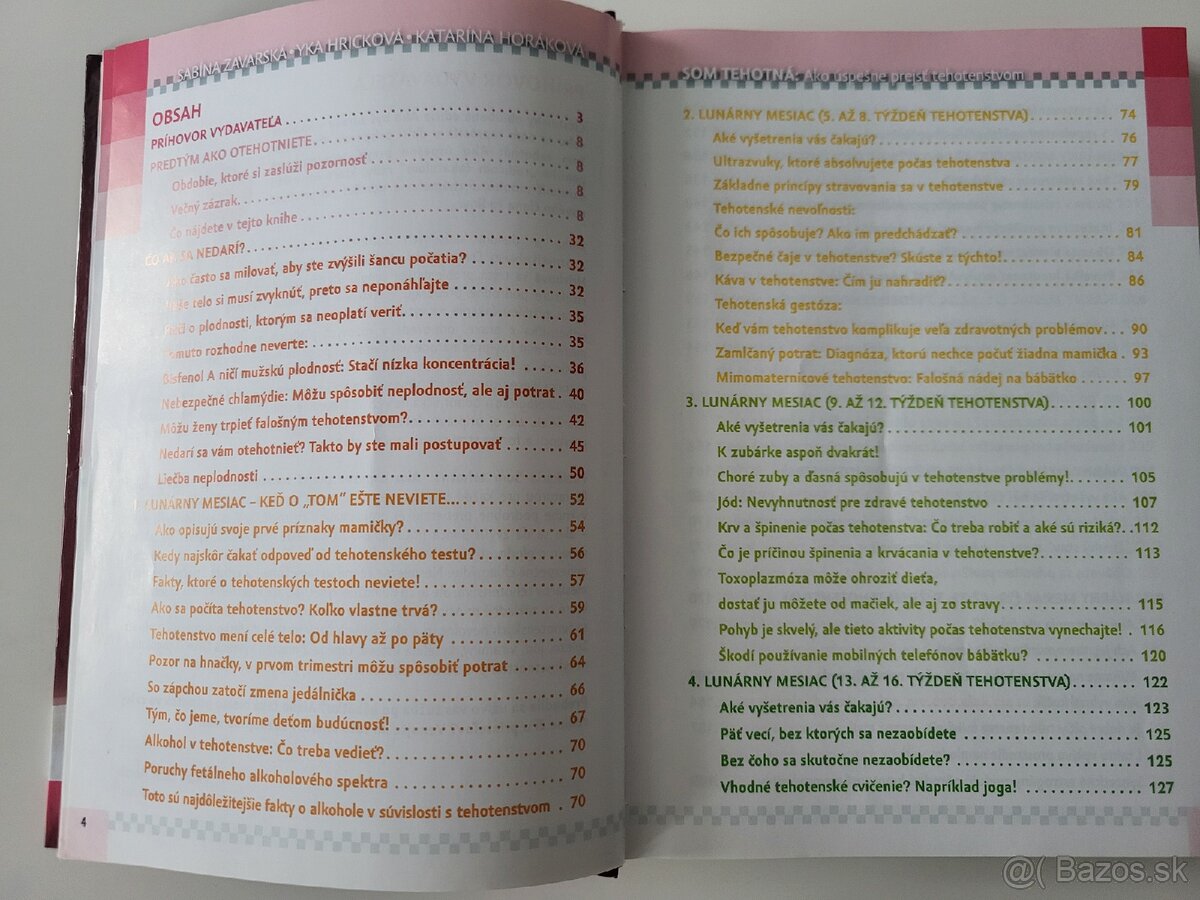 SABÍNA ZAVARSKÁ • YKA HRICKOVÁ • KATARÍNA HORÁKOVÁ
OBSAH
PRÍHOVOR VYDAVATEĽA 3
PREDTÝM AKO OTEHOTNIETE 8
Obdobie, ktoré si zaslúži pozornosť 8
Večný zázrak 8
Čo nájdete v tejto knihe 8
ČO AK SA NEDARÍ? 32
často sa milovať, aby ste zvýšili šancu počatia? 32
telo si musí zvyknúť, preto sa neponáhľajte 32
o plodnosti, ktorým sa neoplatí veriť. 35
rozhodne neverte: 35
Bisfenol A ničí mužskú plodnosť: Stačí nízka koncentrácia! 36
Nebezpečné chlamýdie: Môžu spôsobiť neplodnosť, ale aj potrat . 40
Môžu ženy trpieť falošným tehotenstvom? 42
Nedarí sa vám otehotnieť? Takto by ste mali postupovať 45
Liečba neplodnosti 50
LUNÁRNY MESIAC – KEĎ O „TOM“ EŠTE NEVIETE... 52
Ako opisujú svoje prvé príznaky mamičky? 54
Kedy najskôr čakať odpoveď od tehotenského testu? 56
Fakty, ktoré o tehotenských testoch neviete! 57
Ako sa počíta tehotenstvo? Koľko vlastne trvá? 59
Tehotenstvo mení celé telo: Od hlavy až po päty 61
Pozor na hnačky, v prvom trimestri môžu spôsobiť potrat 64
So zápchou zatočí zmena jedálnička 66
Tým, čo jeme, tvoríme deťom budúcnosť! 67
Alkohol v tehotenstve: Čo treba vedieť? 70
Poruchy fetálneho alkoholového spektra 70
Toto sú najdôležitejšie fakty o alkohole v súvislosti s tehotenstvom . 70
4
SOM TEHOTNÁ: Ako úspešne prejsť tehotenstvom
2. LUNÁRNY MESIAC (5. AŽ 8. TÝŽDEŇ TEHOTENSTVA) 74
Aké vyšetrenia vás čakajú? 76
Ultrazvuky, ktoré absolvujete počas tehotenstva 77
Základne princípy stravovania sa v tehotenstve 79
Tehotenské nevoľnosti:
Čo ich spôsobuje? Ako im predchádzať? 81
Bezpečné čaje v tehotenstve? Skúste z týchto! 84
Káva v tehotenstve: Čím ju nahradiť? 86
Tehotenská gestóza:
Keď vám tehotenstvo komplikuje veľa zdravotných problémov... 90
Zamlčaný potrat: Diagnóza, ktorú nechce počuť žiadna mamička . 93
Mimomaternicové tehotenstvo: Falošná nádej na bábätko 97
3. LUNÁRNY MESIAC (9. AŽ 12. TÝŽDEŇ TEHOTENSTVA) 100
Aké vyšetrenia vás čakajú? 101
K zubárke aspoň dvakrát!
Choré zuby a ďasná spôsobujú v tehotenstve problémy! 105
Jód: Nevyhnutnosť pre zdravé tehotenstvo 107
Krv a špinenie počas tehotenstva: Čo treba robiť a aké sú riziká?. .112
Čo je príčinou špinenia a krvácania v tehotenstve? 113
Toxoplazmóza môže ohroziť dieťa,
dostať ju môžete od mačiek, ale aj zo stravy 115
Pohyb je skvelý, ale tieto aktivity počas tehotenstva vynechajte! . 116
Škodí používanie mobilných telefónov bábätku? 120
4. LUNÁRNY MESIAC (13. AŽ 16. TÝŽDEŇ TEHOTENSTVA) 122
Aké vyšetrenia vás čakajú? 123
Päť vecí, bez ktorých sa nezaobídete 125
Bez čoho sa skutočne nezaobídete? 125
Vhodné tehotenské cvičenie? Napríklad joga! 127
@( Bazos.sk